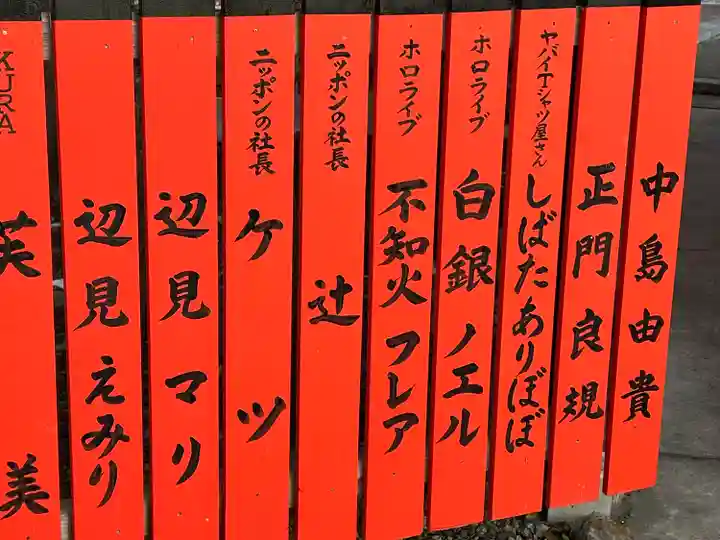 中島由貴
正門良規
ヤバイTシャツ屋さん
しばたありぼぼ
ホロライブ
白銀ノエル
ホロライブ
不知火フレア
ニッポンの社長
辻
ニッポンの社長
ケツ
辺見マリ
辺見えみり
KURA
美